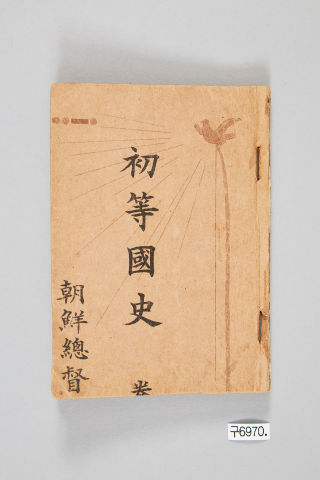 初等國史 卷
朝鮮總督
구6970.